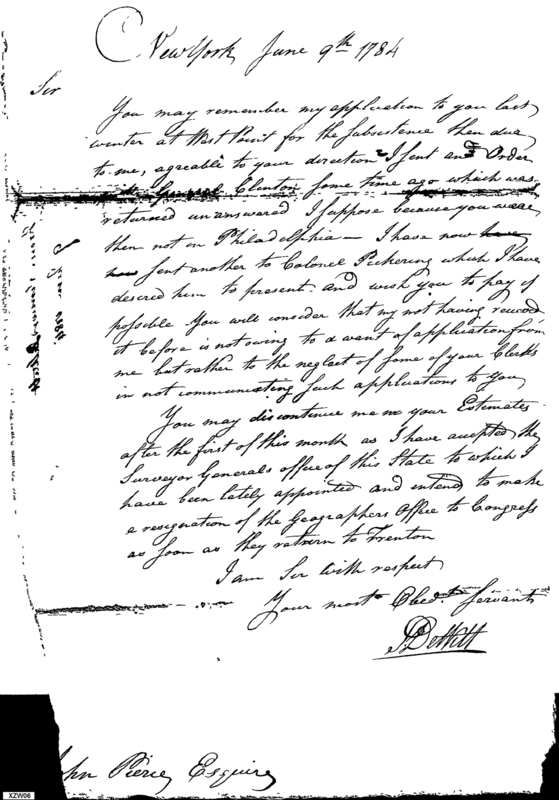 New York June 9th 1784
Sir
You may remember my application to you last
winter at West Point for the Subsistence then due
to me, agreable to your direction I sent an Order
to General Clinton some time ago which was
returned unanswered I suppose because you were
then not in Philadelphia — I have now have
now sent another to Colonel Pickering which I have
desired him to present and wish you to pay if
possible You will consider that my not having received
it before is not owing to a want of application from
me but rather to the neglect of some of your Clerks
in not communicating such applications to you
You may discontinue me in your Estimates
after the first of this month as I have accepted the
Surveyor Generals office of this State to which I
have been lately appointed and intend to make
a resignation of the Geographers Office to Congress
as soon as they return to Trenton
I am Sir with respect
Your most Obedt. Servant
SDeWitt
John Pierce Esquire
XZW06